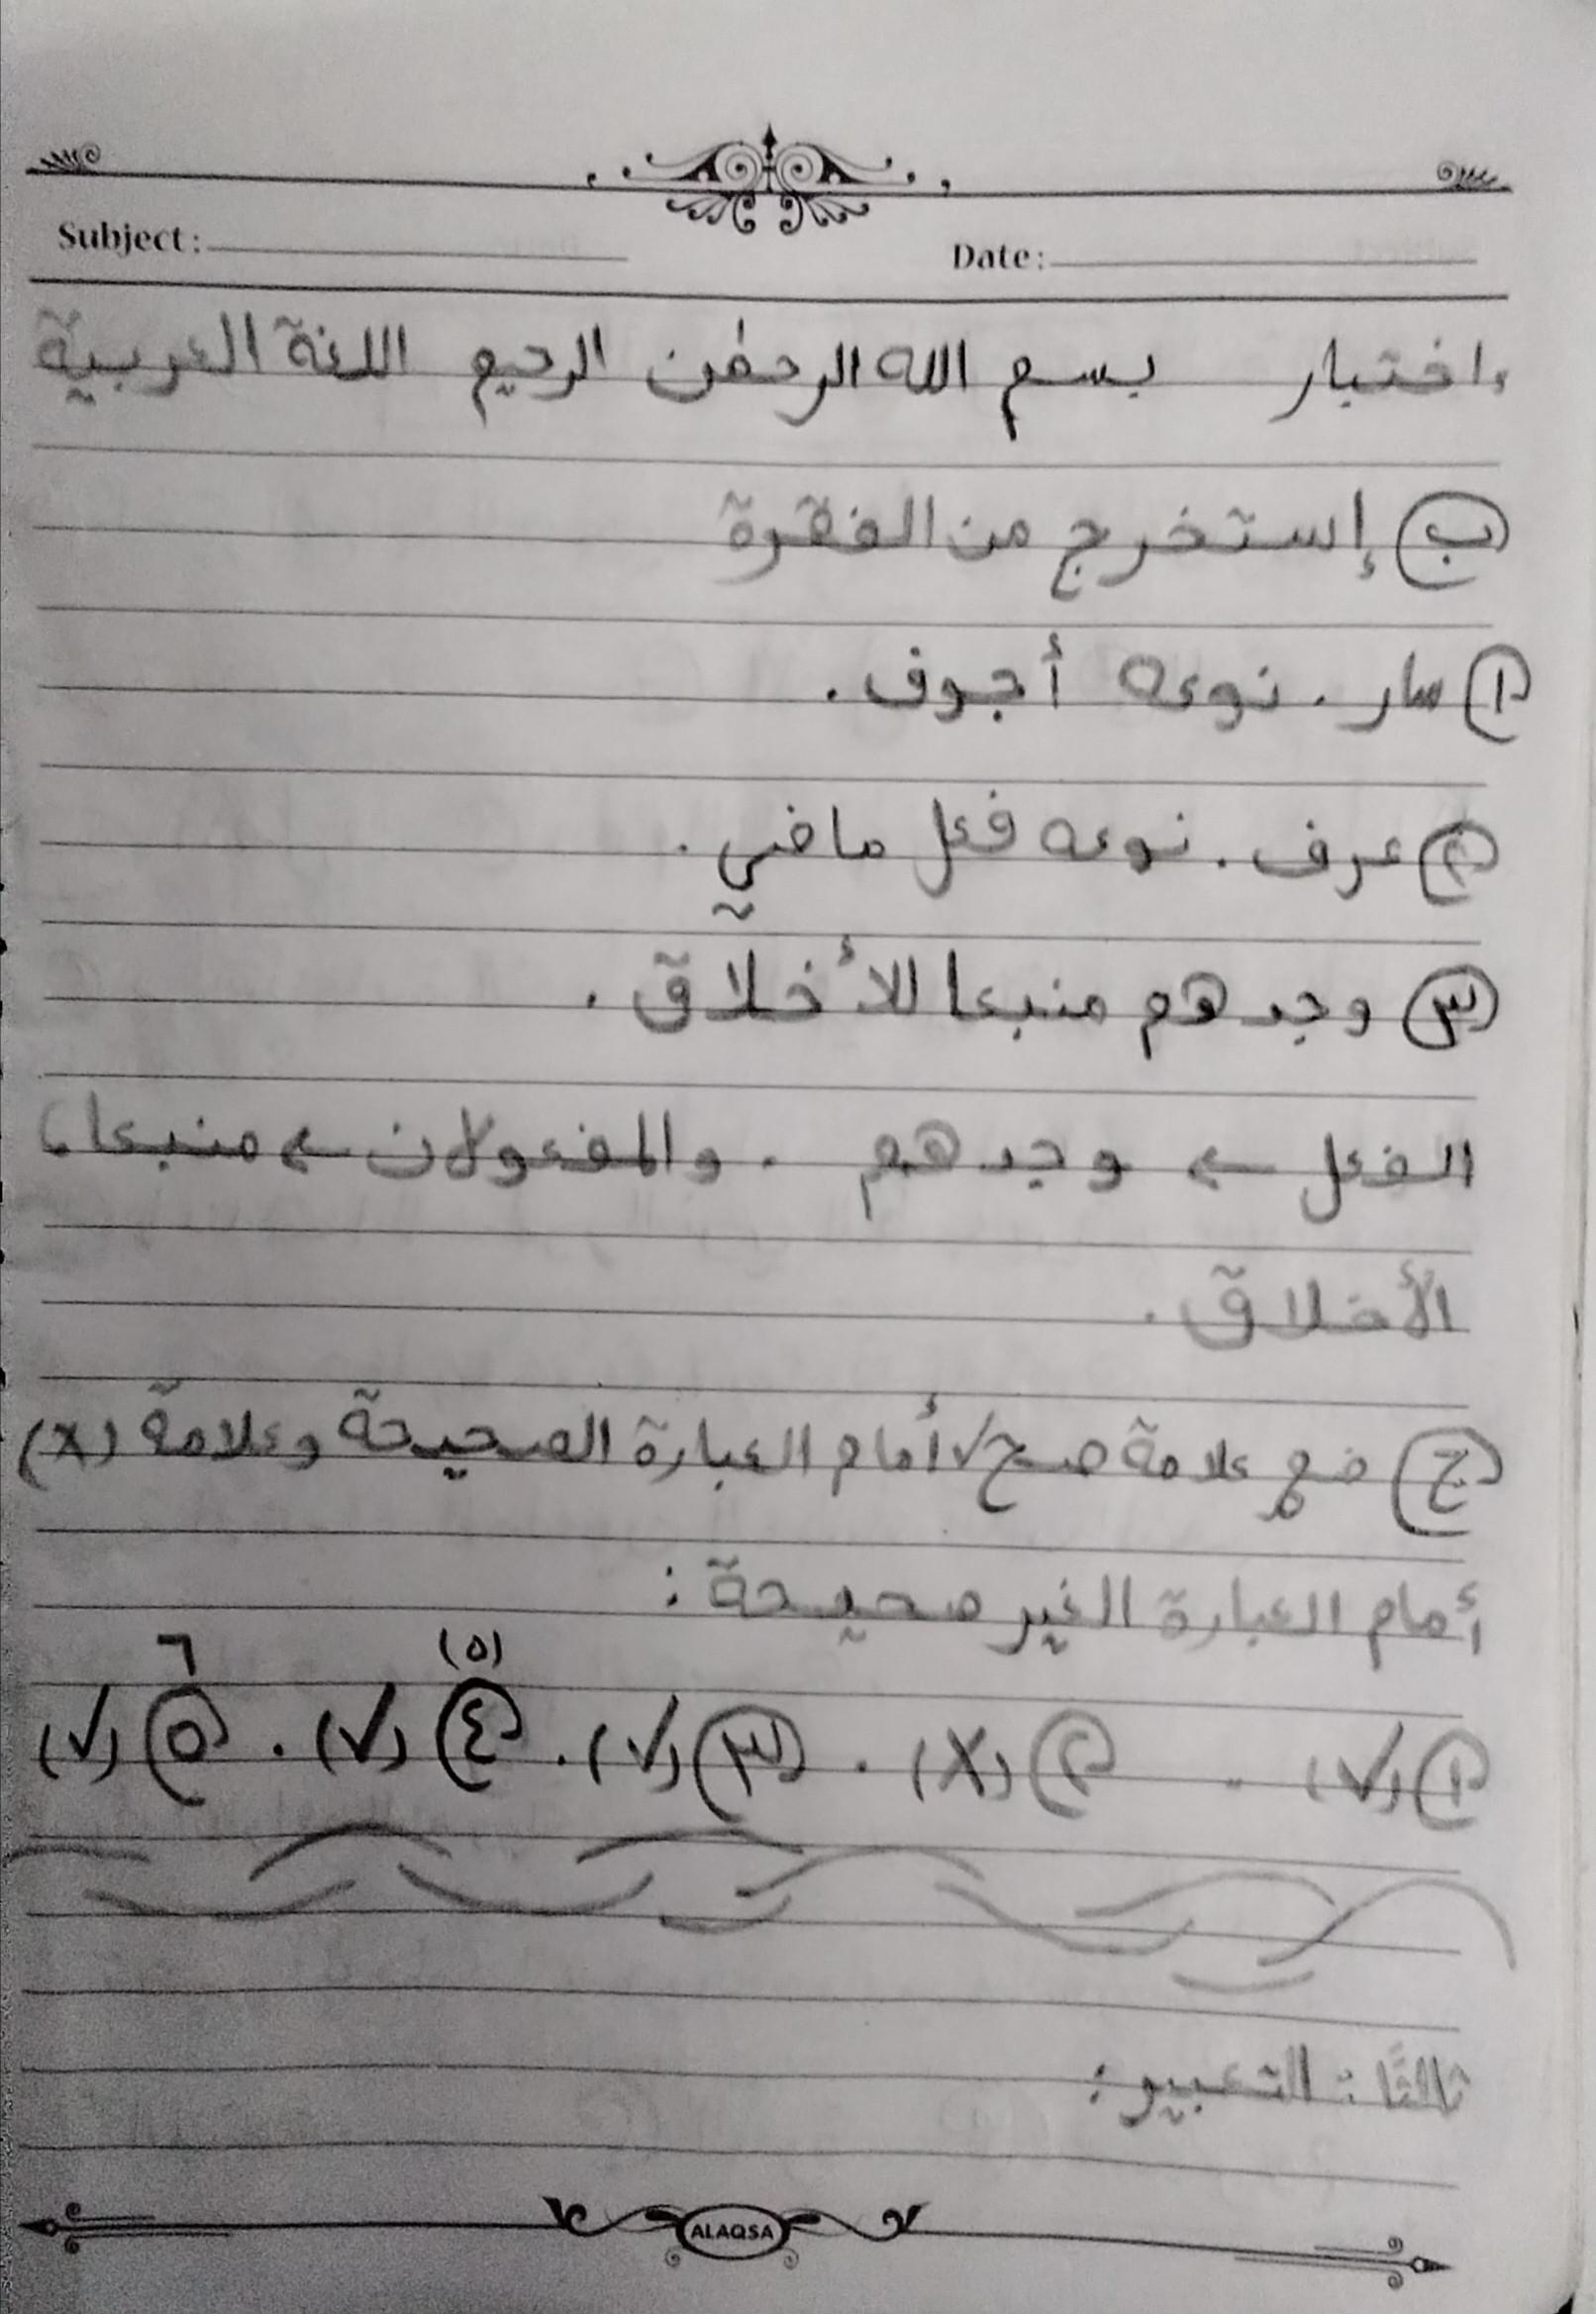 Subject: Date:
اختبار بسم الله الرحمٰن الرحيم اللغة العربية
ب إستخرج من الفقرة
١ سار. نوعه أجوف.
٢ عرف. نوعه فعل ماضي.
٣ وجدهم منبعا للأخلاق.
الفعل ← وجدهم. والمفعولان ← منبعا،
الأخلاق.
ج ضع علامة صح √ أمام العبارة الصحيحة وعلامة (x)
أمام العبارة الغير صحيحة:
(٥) ٦
١ (√) . ٢ (X) . ٣ (√) . ٤ (√) . ٥ (√)
ثالثًا: التعبير:
ALAQSA